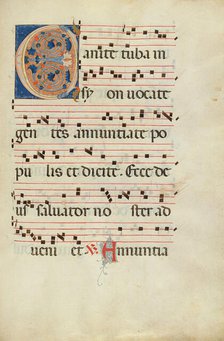 Canite tuba in
syon uocate
gentes annuntiate po
pulis et dicite. Ecce de
us saluator noster ad
ueni et. V. Annuntia